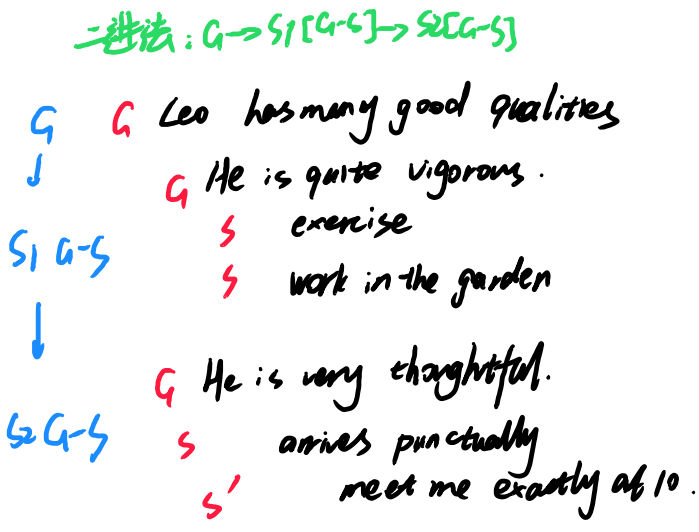 二进法：G→S1[G-S]→S2[G-S]
G G Leo has many good qualities
↓ G He is quite vigorous.
S exercise
S1 G-S
S work in the garden
↓
G He is very thoughtful.
S2 G-S S arrives punctually
S' meet me exactly at 10.